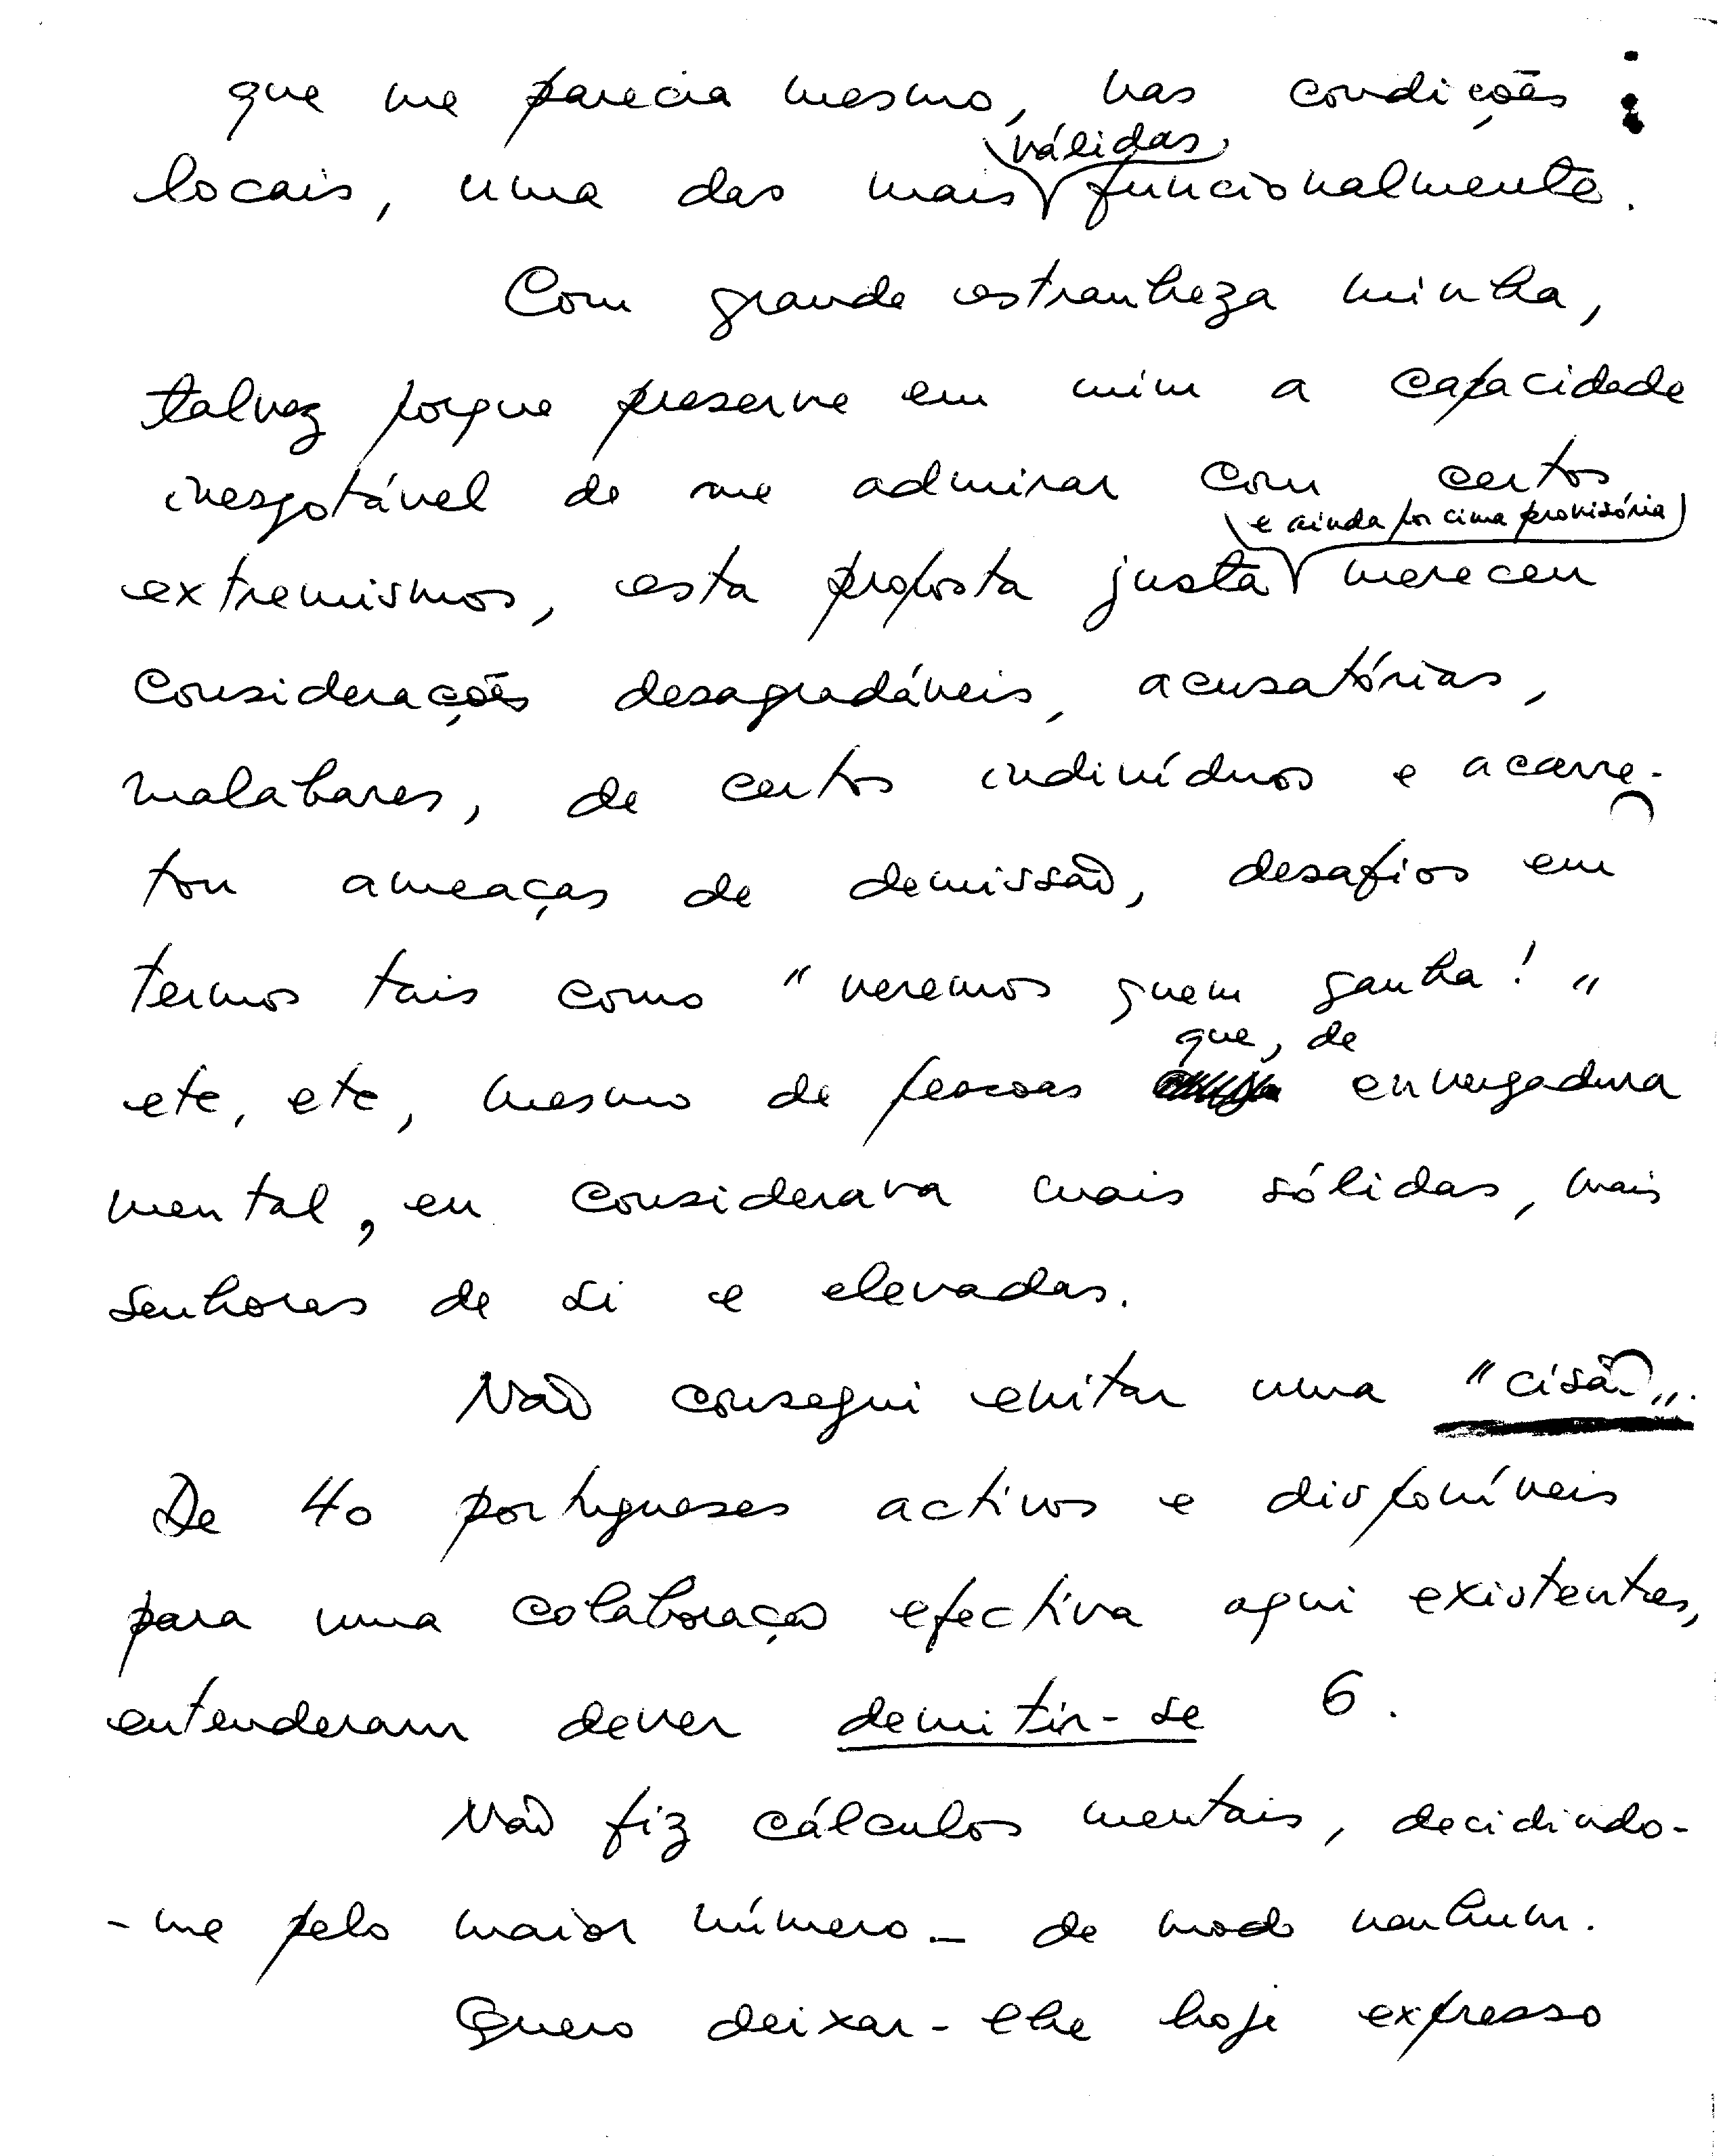 que me parecia mesmo, nas condições
válidas
locais, uma das mais funcionalmente.
Com grande estranheza minha,
talvez porque preserve em mim a capacidade
inesgotável de me admirar com certos
e ainda por cima provisória
extremismos, esta proposta justa mereceu
considerações desagradáveis, acusatórias,
malabares, de certos indivíduos e acarre-
tou ameaças de demissão, desafios em
termos tais como "veremos quem ganha!"
que, de
etc, etc, mesmo de pessoas envergadura
mental, eu considerava mais sólidas, mais
senhoras de si e elevadas.
Não consegui evitar uma "cisão".
De 40 portugueses activos e disponíveis
para uma colaboração efectiva aqui existentes,
entenderam dever demitir-se 6.
Não fiz cálculos mentais, decidindo-
-me pelo maior número - de modo nenhum.
Quero deixar-lhe hoje expresso